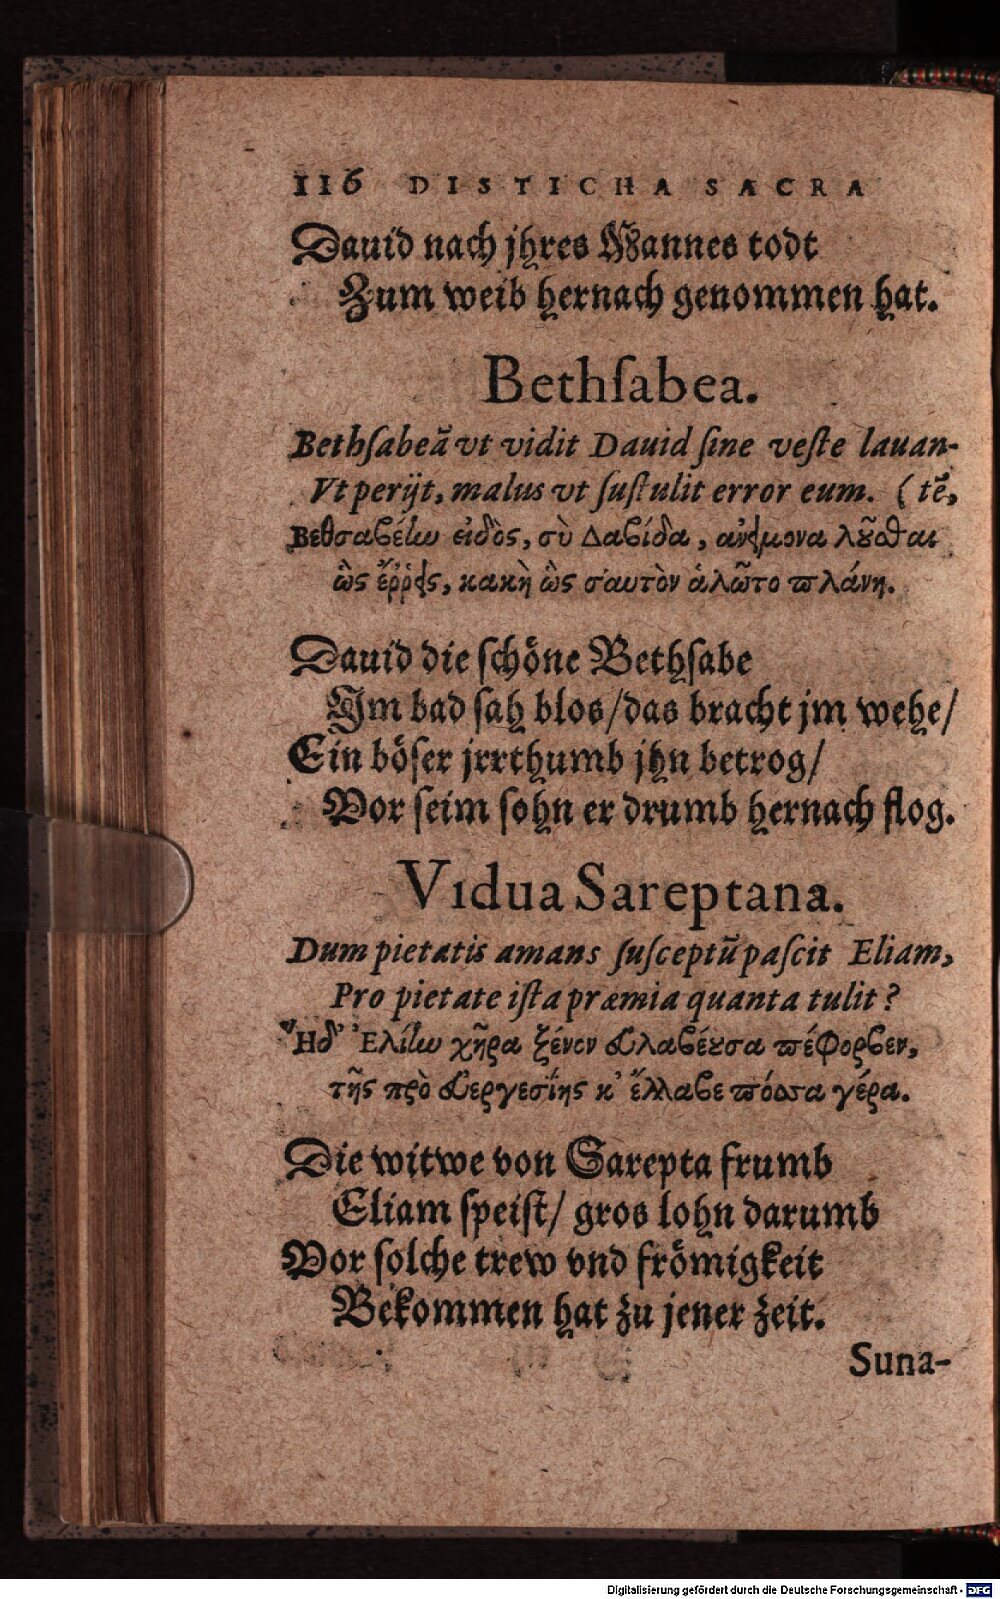 116 DISTICHA SACRA
Dauid nach jhres Mannes todt
Zum weib hernach genommen hat.
Bethſabea.
Bethſabeã vt vidit Dauid ſine veſte lauan-
Vt perijt, malus vt ſuſtulit error eum. (tẽ,
Βεθσαβέην εἰδὸς, σὺ Δαβίδα, ἀνείμονα λοῦσθαι
ὣς ἔῤῥεις, κακὴ ὣς σαυτὸν ἁλῶτο πλάνη.
Dauid die ſchöne Bethſabe
Im bad ſah blos/das bracht jm wehe/
Ein böſer jrrthumb jhn betrog/
Vor ſeim ſohn er drumb hernach flog.
Vidua Sareptana.
Dum pietatis amans ſuſceptũ paſcit Eliam,
Pro pietate iſta præmia quanta tulit?
Ἥδ' Ἐλίην χῆρα ξένον εὐλαβέουσα πέφορβεν,
τῆς πρὸ εὐεργεσίης κ' ἔλλαβε πόσσα γέρα.
Die witwe von Sarepta frumb
Eliam ſpeiſt/ gros lohn darumb
Vor ſolche trew vnd frömigkeit
Bekommen hat zu jener zeit.
Suna-
Digitalisierung gefördert durch die Deutsche Forschungsgemeinschaft - DFG